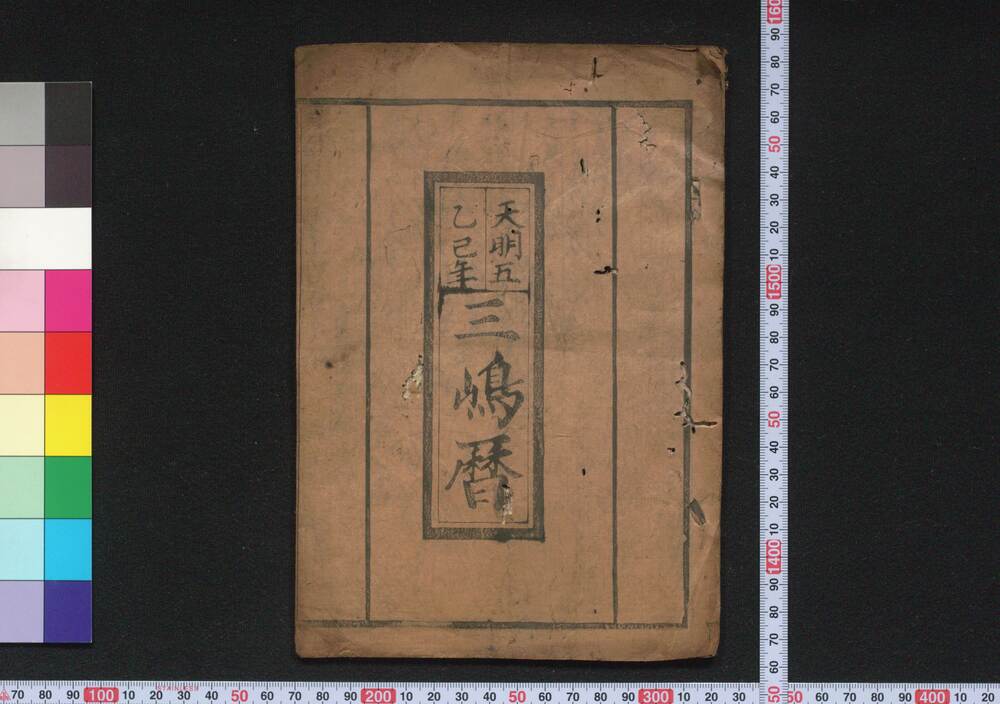 天明五
乙巳年
三嶋暦
160
90
80
70
60
50
40
30
20
10
1500
90
80
70
60
50
40
30
20
10
1400
90
80
70
60
50
70 80 90 100 10 20 30 40 50 60 70 80 90 200 10 20 30 40 50 60 70 80 90 300 10 20 30 50 60 70 80 90 400 10 20